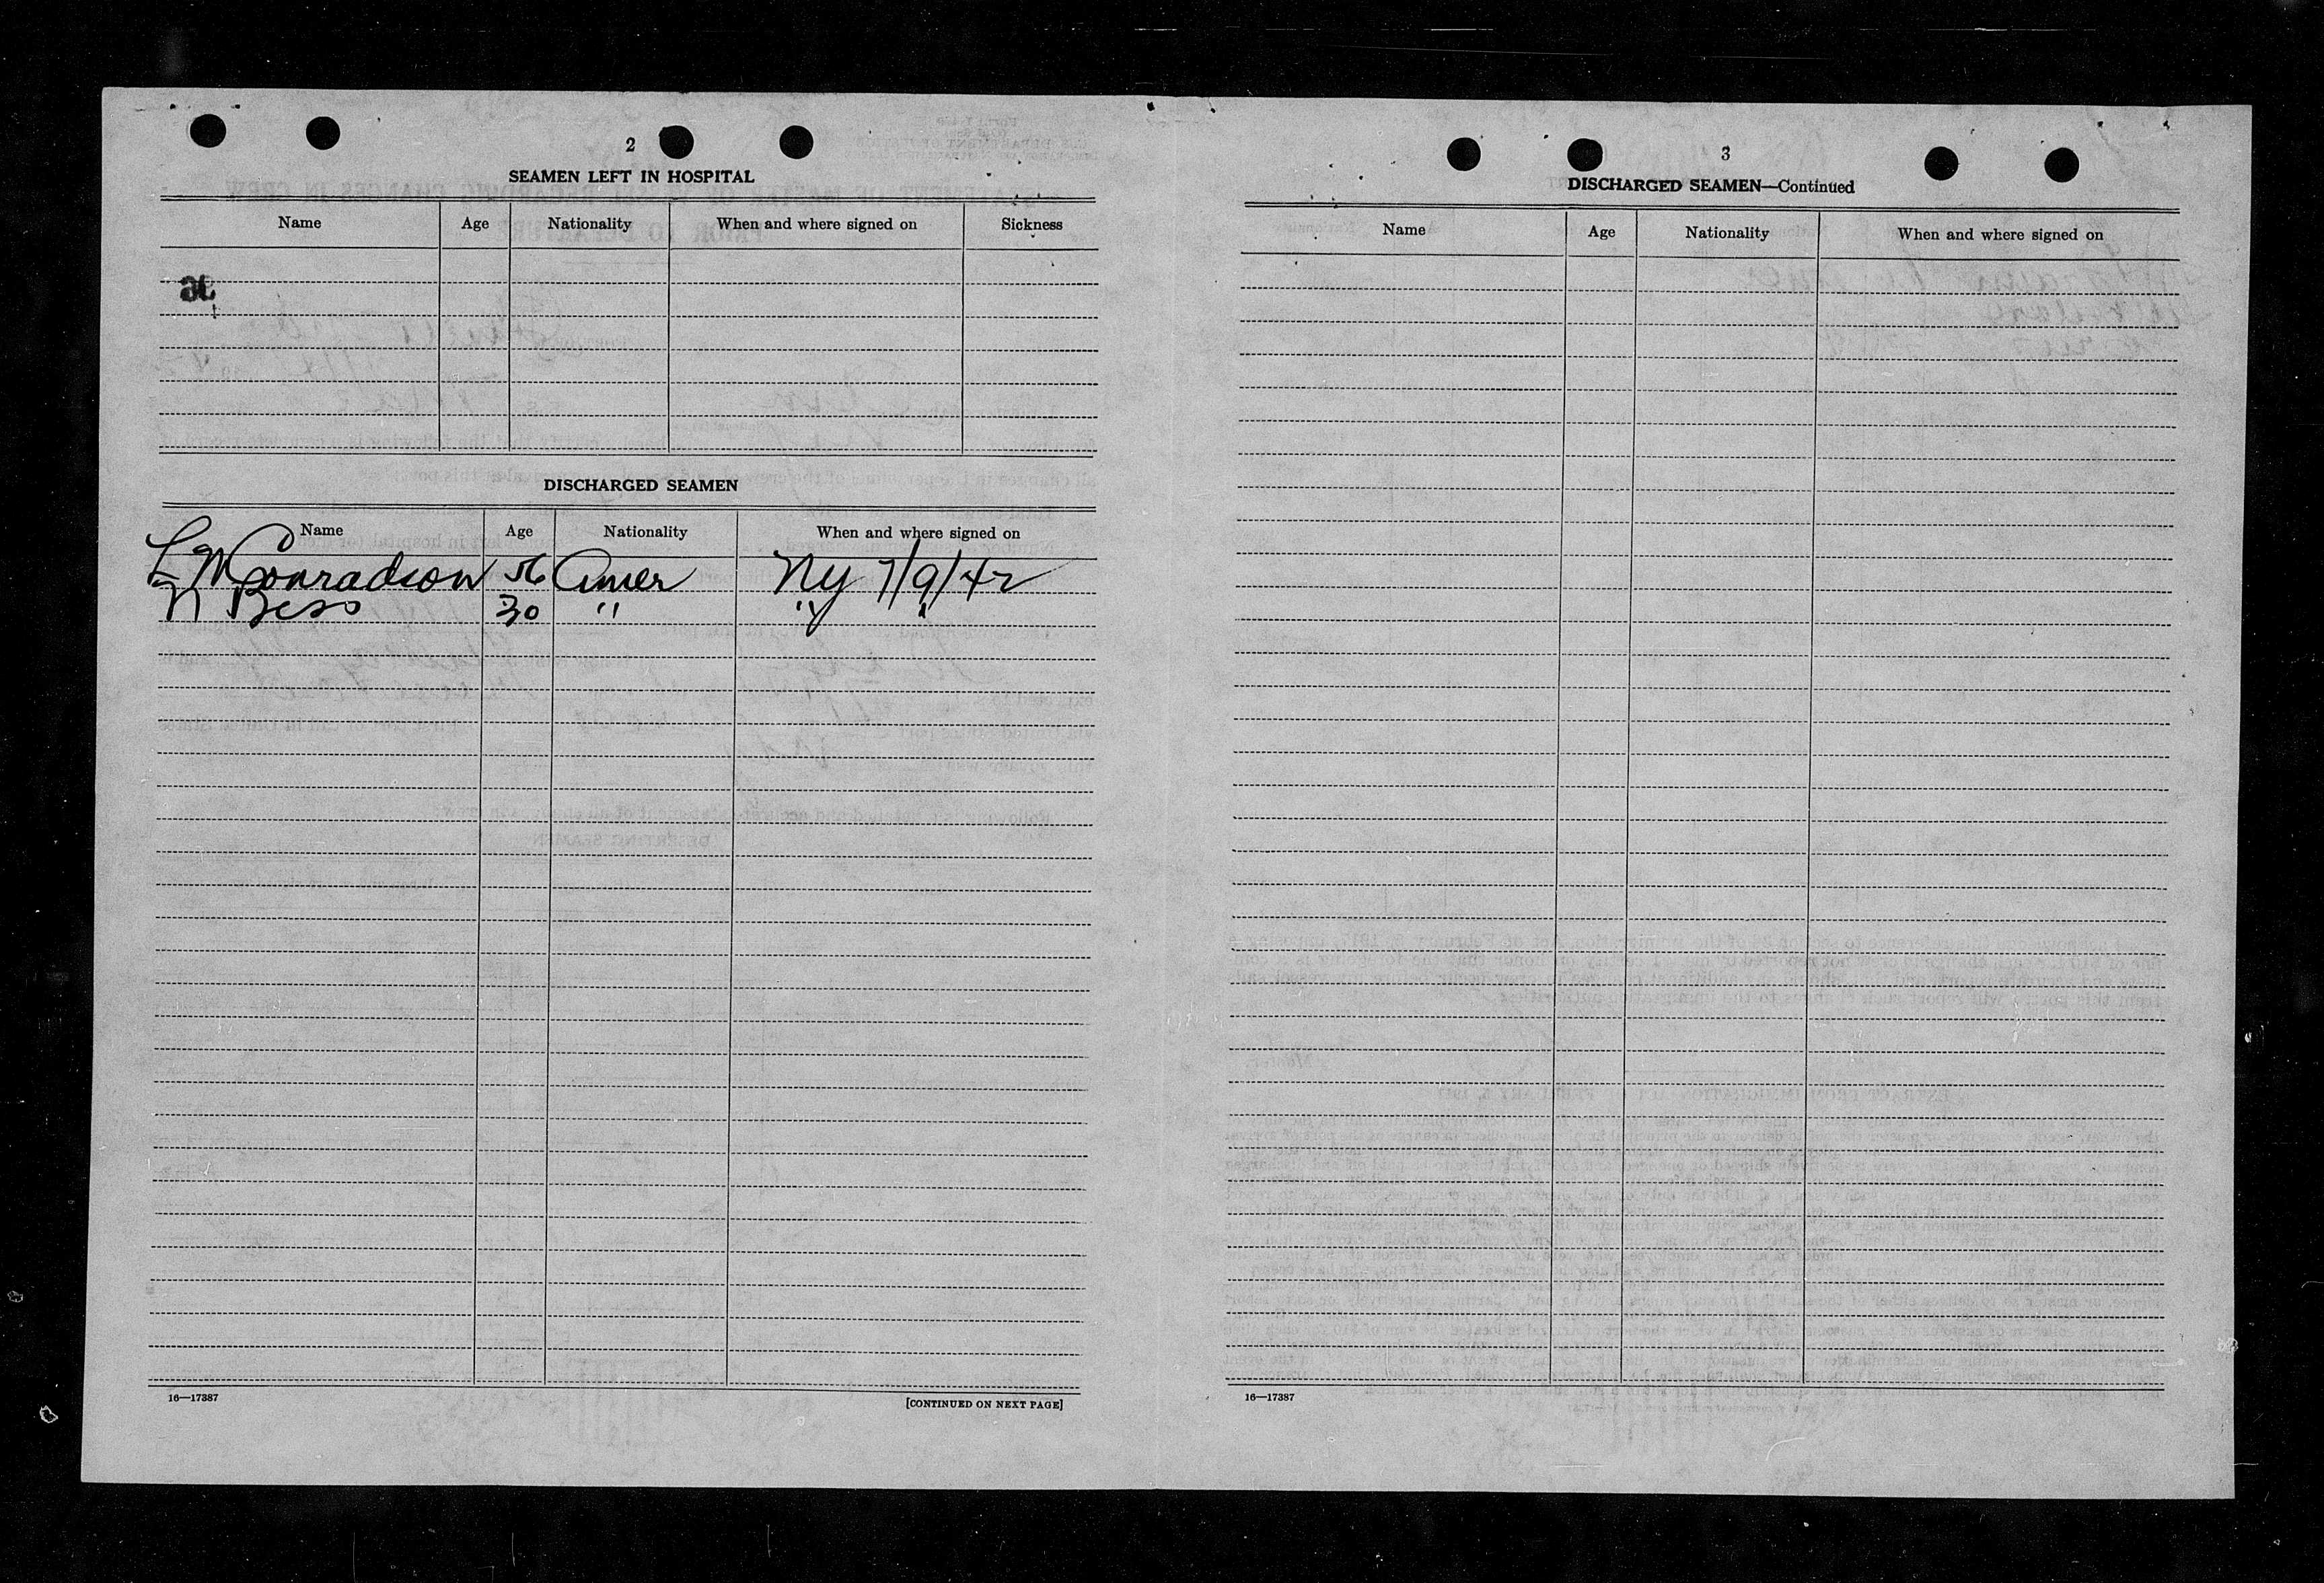 2
SEAMEN LEFT IN HOSPITAL
Name Age Nationality When and where signed on Sickness
DISCHARGED SEAMEN
Name Age Nationality When and where signed on
L M Conradson 56 Amer NY 7/9/42
N Beso 30 " " "
16—17387
[CONTINUED ON NEXT PAGE]
3
DISCHARGED SEAMEN—Continued
Name Age Nationality When and where signed on
16—17387